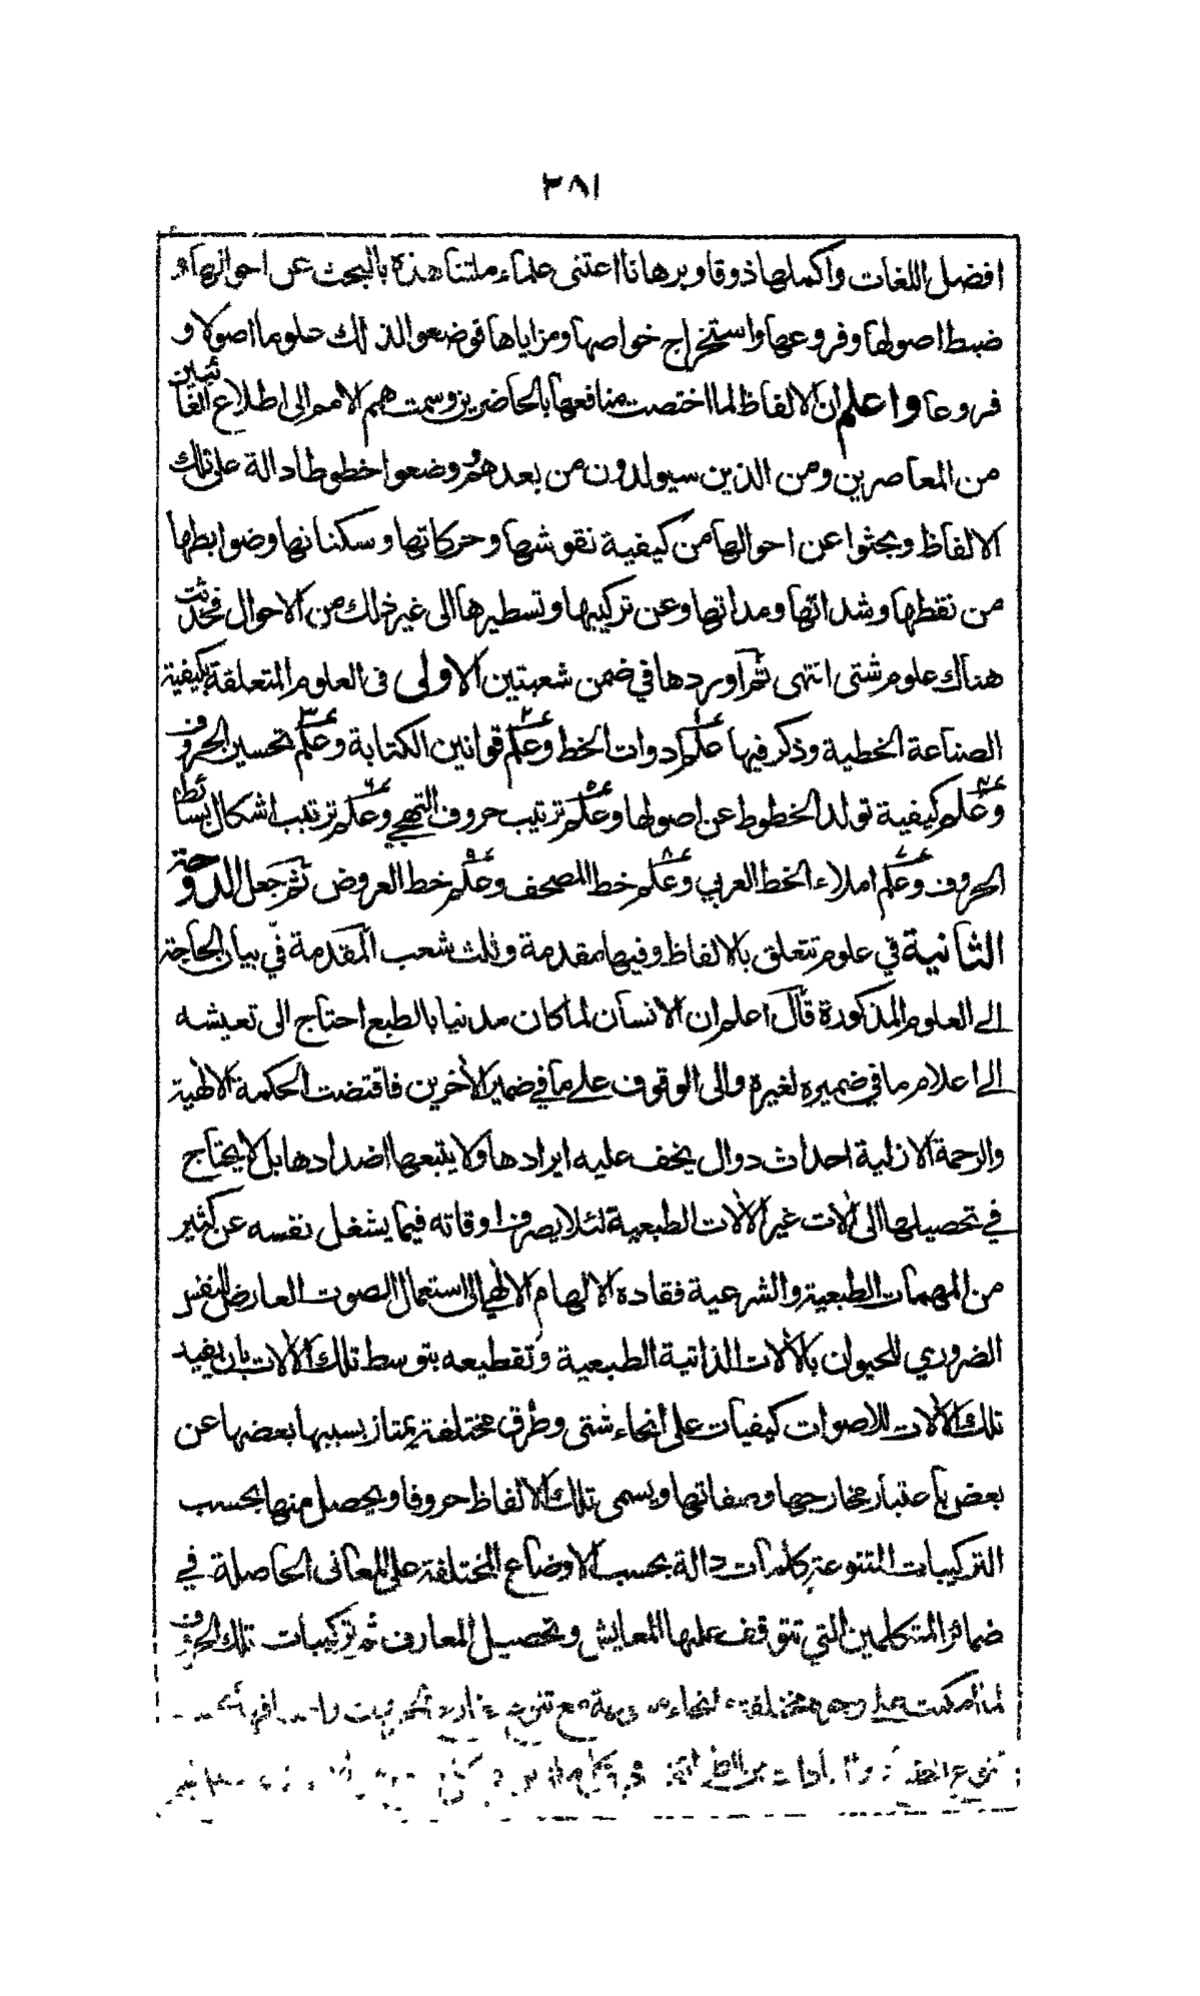 ٣٨١
افضل اللغات واكملها ذوقا وبرهانا اعتنى علماء ملتنا هذه بالبحث عن احوالها و
ضبط اصولها وفروعها واستخراج خواصها ومزاياها فوضعوا لذلك علوما اصولا و
فروعا واعلم ان الالفاظ لما اختصت منافعها بالحاضرين وسمت همم الامم الى اطلاع الغائبين
من المعاصرين ومن الذين سيولدون من بعدهم وضعوا خطوطا دالة على تلك
الالفاظ وبحثوا عن احوالها من كيفية نقوشها وحركاتها وسكناتها وضوابطها
من نقطها وشداتها ومداتها وعن تركيبها وتسطيرها الى غير ذلك من الاحوال فحدثت
هناك علوم شتى انتهى ثم اوردها في ضمن شعبتين الاولى فى العلوم المتعلقة بكيفية
الصناعة الخطية وذكر فيها علم ادوات الخط وعلم قوانين الكتابة وعلم تحسين الحروف
وعلم كيفية تولد الخطوط عن اصولها وعلم ترتيب حروف التهجي وعلم ترتيب اشكال بسائط
الحروف وعلم املاء الخط العربي وعلم خط المصحف وعلم خط العروض ثم جعل الدوحة
الثانية في علوم تتعلق بالالفاظ وفيها مقدمة وثلث شعب المقدمة في بيان الحاجة
الى العلوم المذكورة قال اعلم ان الانسان لما كان مدنيا بالطبع احتاج الى تعيشه
الى اعلام ما في ضميره لغيره والى الوقوف على ما في ضمير الآخرين فاقتضت الحكمة الالهية
والرحمة الازلية احداث دوال يخف عليه ايرادها ولا يتبعها اضدادها بل لا يحتاج
في تحصيلها الى آلات غير الآلات الطبعية لئلا يصرف اوقاته فيما يشغل نفسه عن كثير
من المهمات الطبعية والشرعية فقاده الالهام الالهي الى استعمال الصوت العارض للنفس
الضروري للحيوان بالآلات الذاتية الطبعية وتقطيعه بتوسط تلك الآلات بان يفيد
تلك الآلات للاصوات كيفيات على انحاء شتى وطرق مختلفة يمتاز بسببها بعضها عن
بعض باعتبار مخارجها وصفاتها ويسمى تلك الالفاظ حروفا ويحصل منها بحسب
التركيبات المتنوعة كلمات دالة بحسب الاوضاع المختلفة على المعانى الحاصلة في
ضمائر المتكلمين التي تتوقف عليها المعايش وتحصيل المعارف ثم تركيبات تلك الحروف
لما امكنت على وجوه مختلفة وانحاء